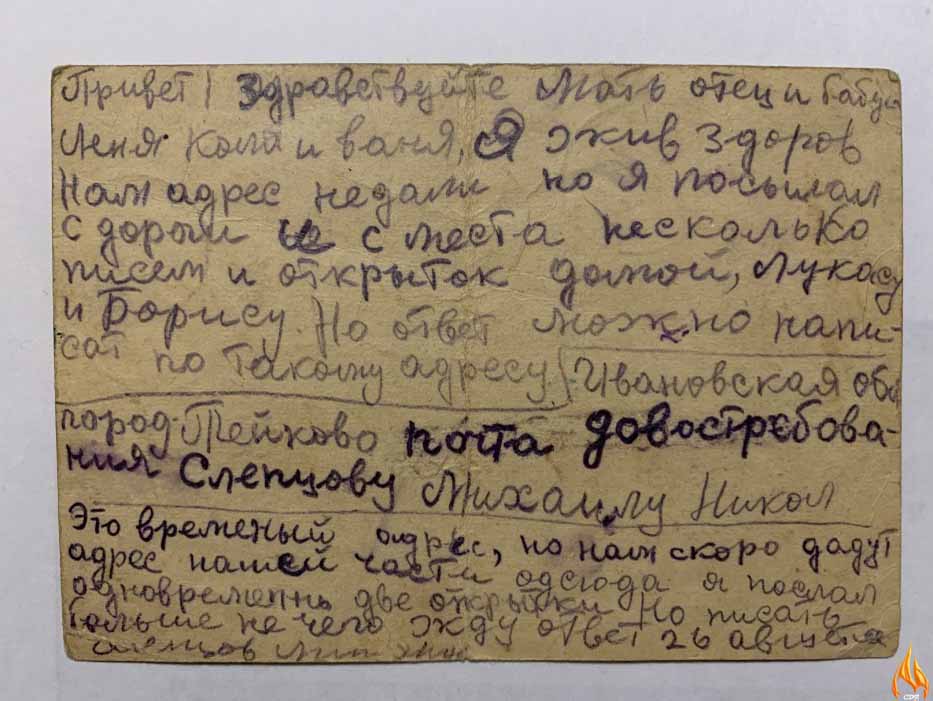 Привет! Здравствуйте Мать отец и бабуш
Леня Коля и ваня, Я жив здоров
Нам адрес недали но я посылал
с дороги и с места несколько
писем и открыток домой, Лукасу
и Борису. Но ответ можно напи-
сат по такому адресу (Ивановская обл
город Тейково почта довостребова-
ния Слепцову Михаилу Никол
Это временый адрес, но нам скоро дадут
адрес нашей части одсюда я послал
одновременнь две открытки Но писать
больше не чего жду ответ 26 августа
Слепцов